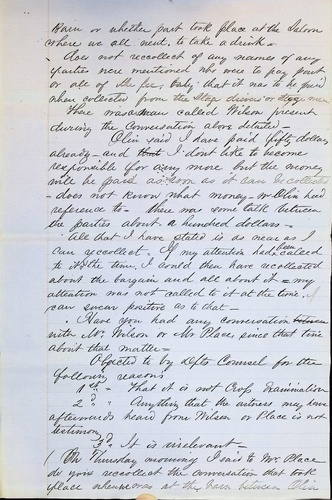 Barn or whether part took place at the Saloon
where we all went, to take a drink –
Does not recollect of any names of any
parties were mentioned who were to pay part
or all of the fee, only that it was to be paid
when collected from the Stage drivers or Stage men
There was a man called Wilson present
during the conversation above detailed –
Olin said I have paid fifty dollars
already – and I dont like to become
responsible for any more but the money
will be paid as soon as it can be collected
– does not know what money – Olin had
reference to – there was some talk between
the parties about a hundred dollars –
All that I have stated is as near as I
can recollect. If my attention had been called
to it at the time, I would then have recollected
about the bargain and all about it – my
attention was not called to it at the time, I
can swear positive as to that –
Have you had any conversation
with Mr Wilson or Mr Place, since that time
about that matter –
Objected to by Defts Counsel for the
following reasons
1st – That it is not Cross Examination
2d " Anything that the witness may have
afterwards heard from Wilson or Place is not
testimony
3d It is irrelevant –
On Thursday morning I said to Mr Place
do you recollect the conversation that took
place at the barn between Olin